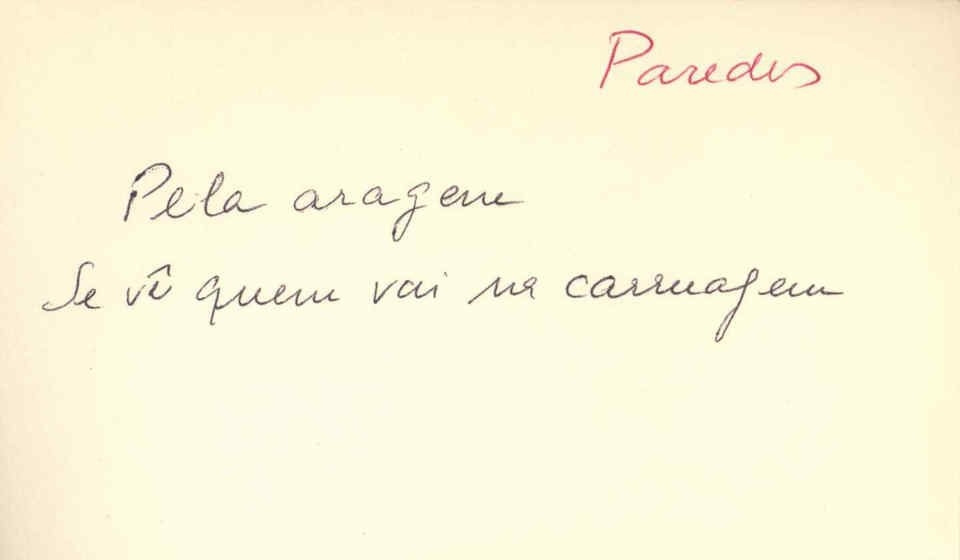 Paredes
Pela aragem
Se vê quem vai na carruagem